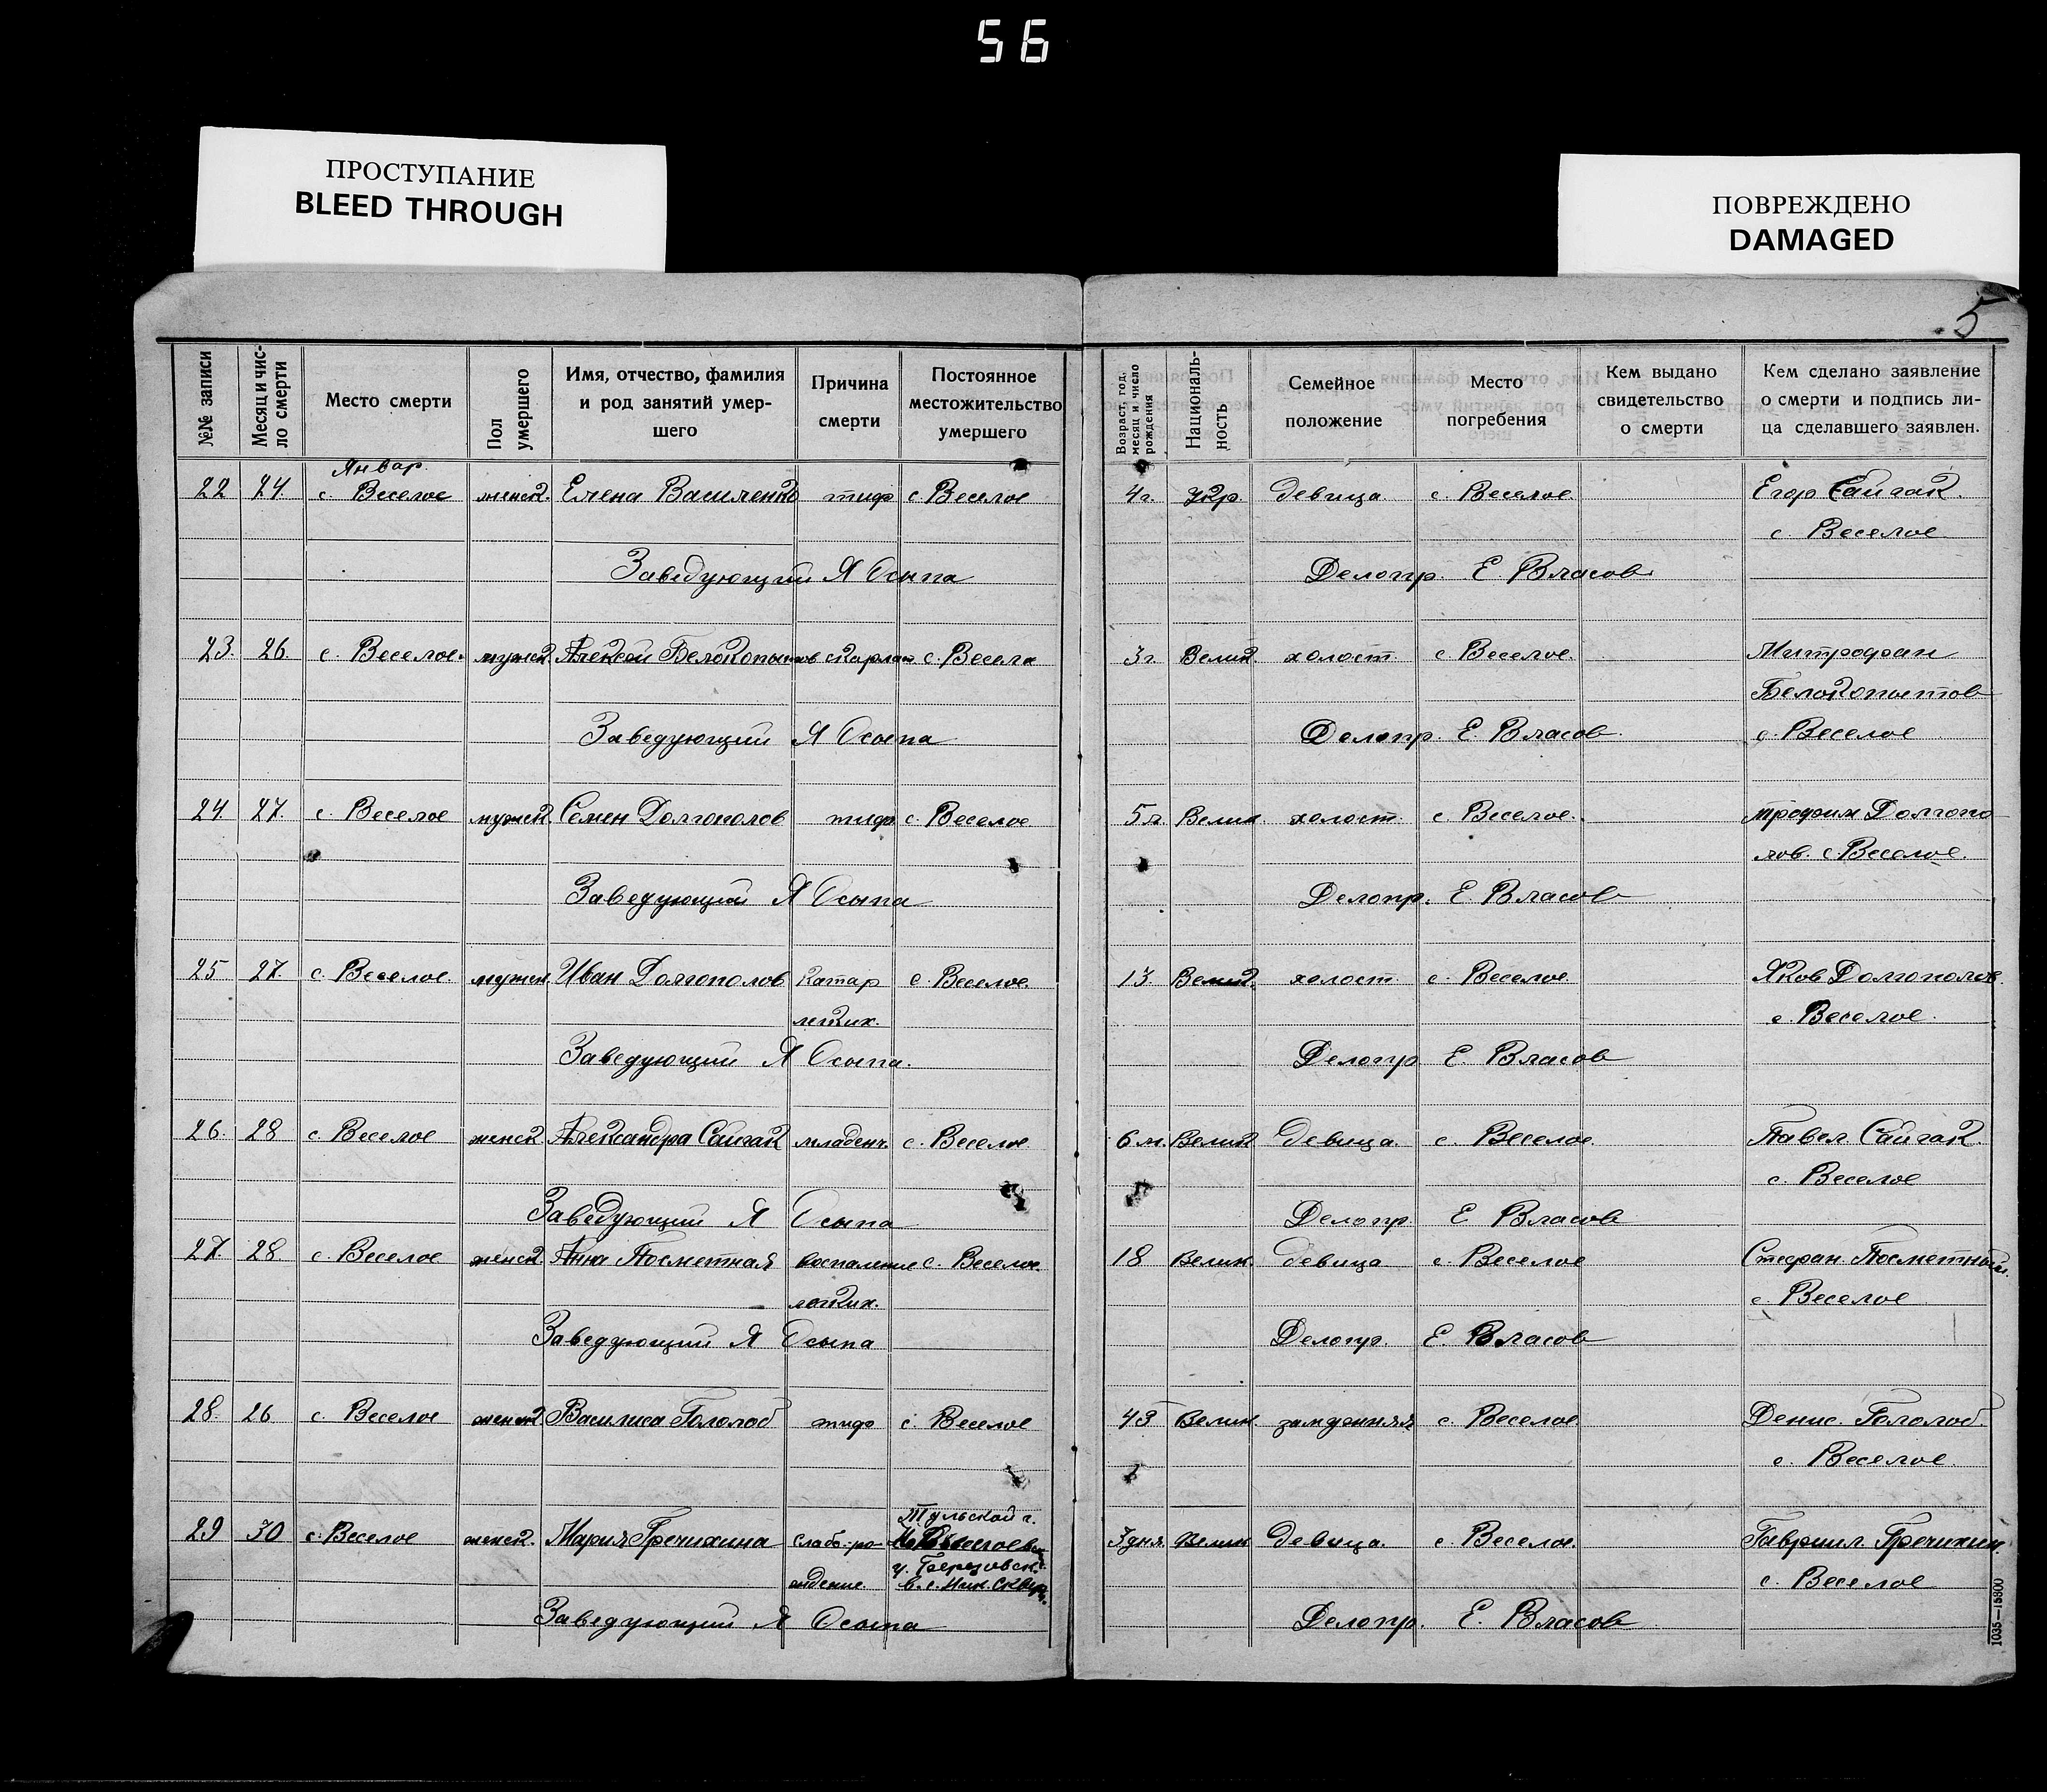 56
ПРОСТУПАНИЕ
BLEED THROUGH
ПОВРЕЖДЕНО
DAMAGED
5
№№ записи
Месяц и чис-
ло смерти
Место смерти
Пол
умершего
Имя, отчество, фамилия
и род занятий умер-
шего
Причина
смерти
Постоянное
местожительство
умершего
Возраст, год,
месяц и число
рождения
Националь-
ность
Семейное
положение
Место
погребения
Кем выдано
свидетельство
о смерти
Кем сделано заявление
о смерти и подпись ли-
ца сделавшего заявлен.
Январ.
22 24. с. Веселое женск. Елена Василенко тиф с Веселое 4 г. Укр. девица с. Веселое Егор Сайгак.
с. Веселое
Заведующий Я Осыпа Делопр. Е. Власов
23. 26. с. Веселое. мужск. Алексей Белокопытов скарлат с. Весела 3 г. Велик. холост с. Веселое. Митрофан
Белокопытов
с. Веселое
Заведующий Я Осыпа Делопр. Е. Власов.
24. 27. с. Веселое мужск. Семен Долгополов тиф с. Веселое 5 г. Велик. холост. с. Веселое. Трофим Долгопо
лов. с. Веселое.
Заведующий Я Осыпа Делопр. Е. Власов
25 27. с. Веселое. мужск. Иван Долгополов Катар с. Веселое. 13. Велик. холост с. Веселое. Яков Долгополов.
легких. с. Веселое.
Заведующий Я Осыпа. Делопр Е. Власов
26. 28 с. Веселое женск Александра Сайгак младенч. с. Веселое. 6 м. Велик девица. с. Веселое. Павел Сайгак.
с. Веселое
Заведующий Я Осыпа Делопр. Е Власов
27. 28. с. Веселое женск. Анна Посметная воспаление с. Веселое. 18 Велик. девица с. Веселое Стефан Посметный.
легких. с. Веселое
Заведующий Я Осыпа Делопр. Е. Власов
28. 26 с. Веселое женск Василиса Гололоб тиф с. Веселое 43 Велик. замужняя с. Веселое Денис. Гололоб.
с. Веселое.
Тульской г.
29 30 с. Веселое женск. Мария Гречихина слабо-ро- 3 дня. Велик девица. с. Веселое. Гавриил Гречихин.
у. Березовск.
ждение. в. с. Ник. с. Веселое
Заведующий Я Осыпа Делопр. Е. Власов
1035—155800